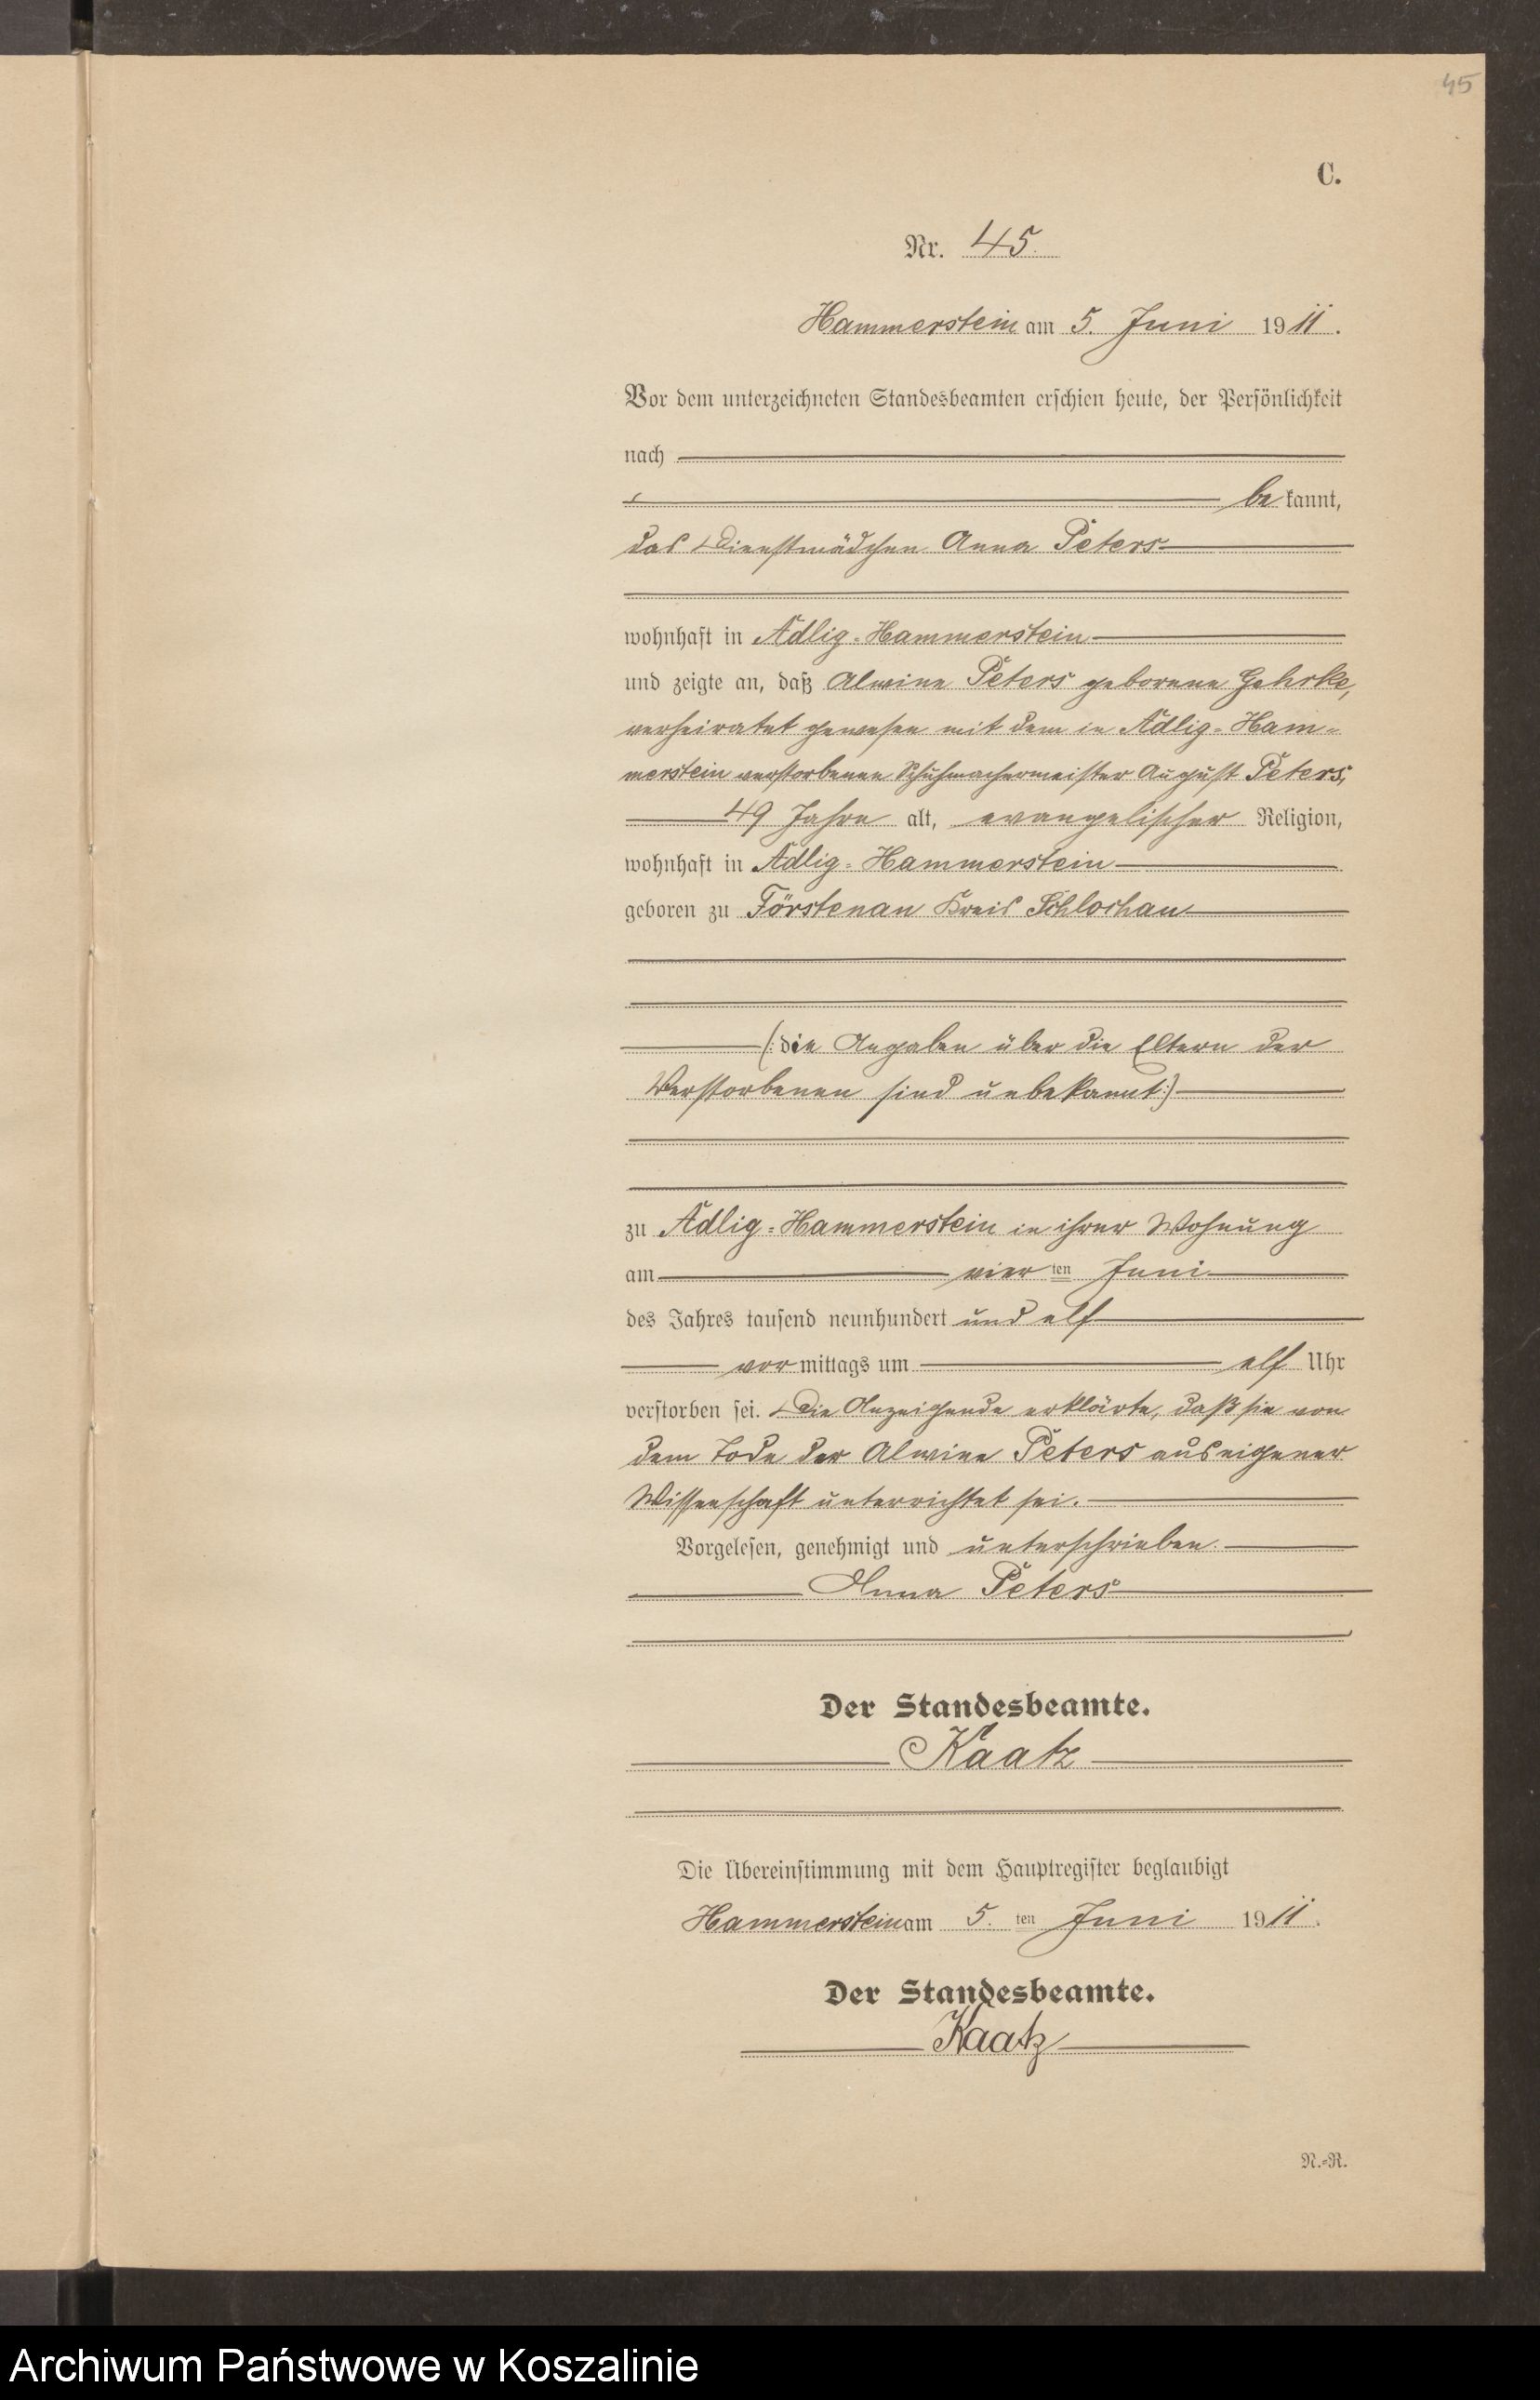 45
C.
Nr. 45.
Hammerstein am 5. Juni 1911.
Vor dem unterzeichneten Standesbeamten erschien heute, der Persönlichkeit
nach
bekannt,
das Dienstmädchen Anna Peters
wohnhaft in Adlig-Hammerstein
und zeigte an, daß Alwine Peters geborene Gehrke,
verheiratet gewesen mit dem in Adlig-Ham-
merstein verstorbenen Schuhmachermeister August Peters,
49 Jahre alt, evangelischer Religion,
wohnhaft in Adlig-Hammerstein
geboren zu Förstenau Kreis Schlochau
(: die Angaben über die Eltern der
Verstorbenen sind unbekannt :)
zu Adlig-Hammerstein in ihrer Wohnung
am vier ten Juni
des Jahres tausend neunhundert und elf
vormittags um elf Uhr
verstorben sei. Die Anzeigende erklärte, daß sie von
dem Tode der Alwine Peters aus eigener
Wissenschaft unterrichtet sei.
Vorgelesen, genehmigt und unterschrieben.
Anna Peters
Der Standesbeamte.
Kaatz
Die Übereinstimmung mit dem Hauptregister beglaubigt
Hammerstein am 5. ten Juni 1911.
Der Standesbeamte.
Kaatz
N.-R.
Archiwum Państwowe w Koszalinie